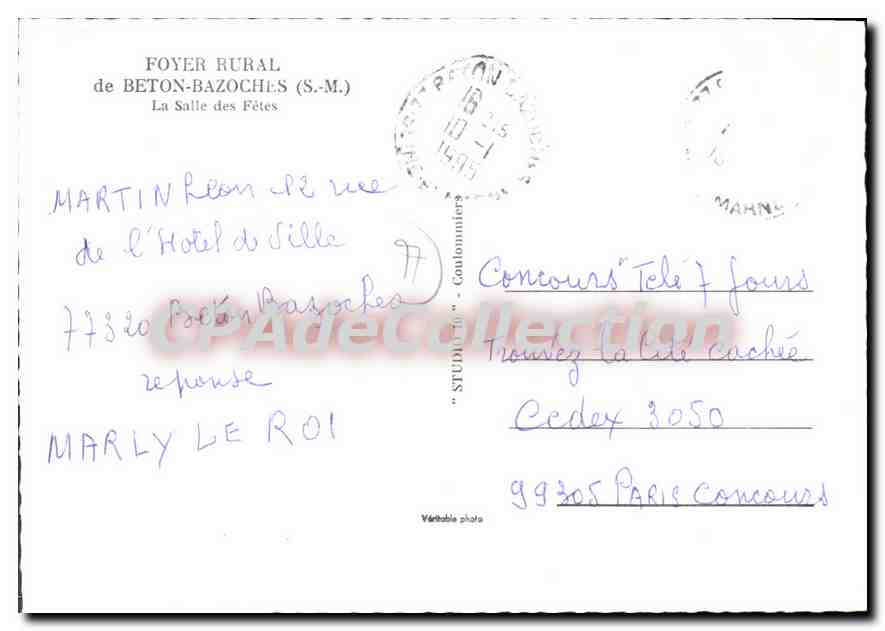 FOYER RURAL
de BETON-BAZOCHES (S.-M.)
La Salle des Fêtes
BETON BAZOCHES
18
10 -1
1995
MARNE
MARTIN Léon 12 rue
de l'Hotel de Ville
77
77320 Beton Bazoches
reponse
MARLY LE ROI
"STUDIO 10" - Coulommiers
Concours "Télé 7 Jours
Trouvez la Cité cachée
Cedex 3050
99305 PARIS Concours
Véritable photo
CPAdeCollection